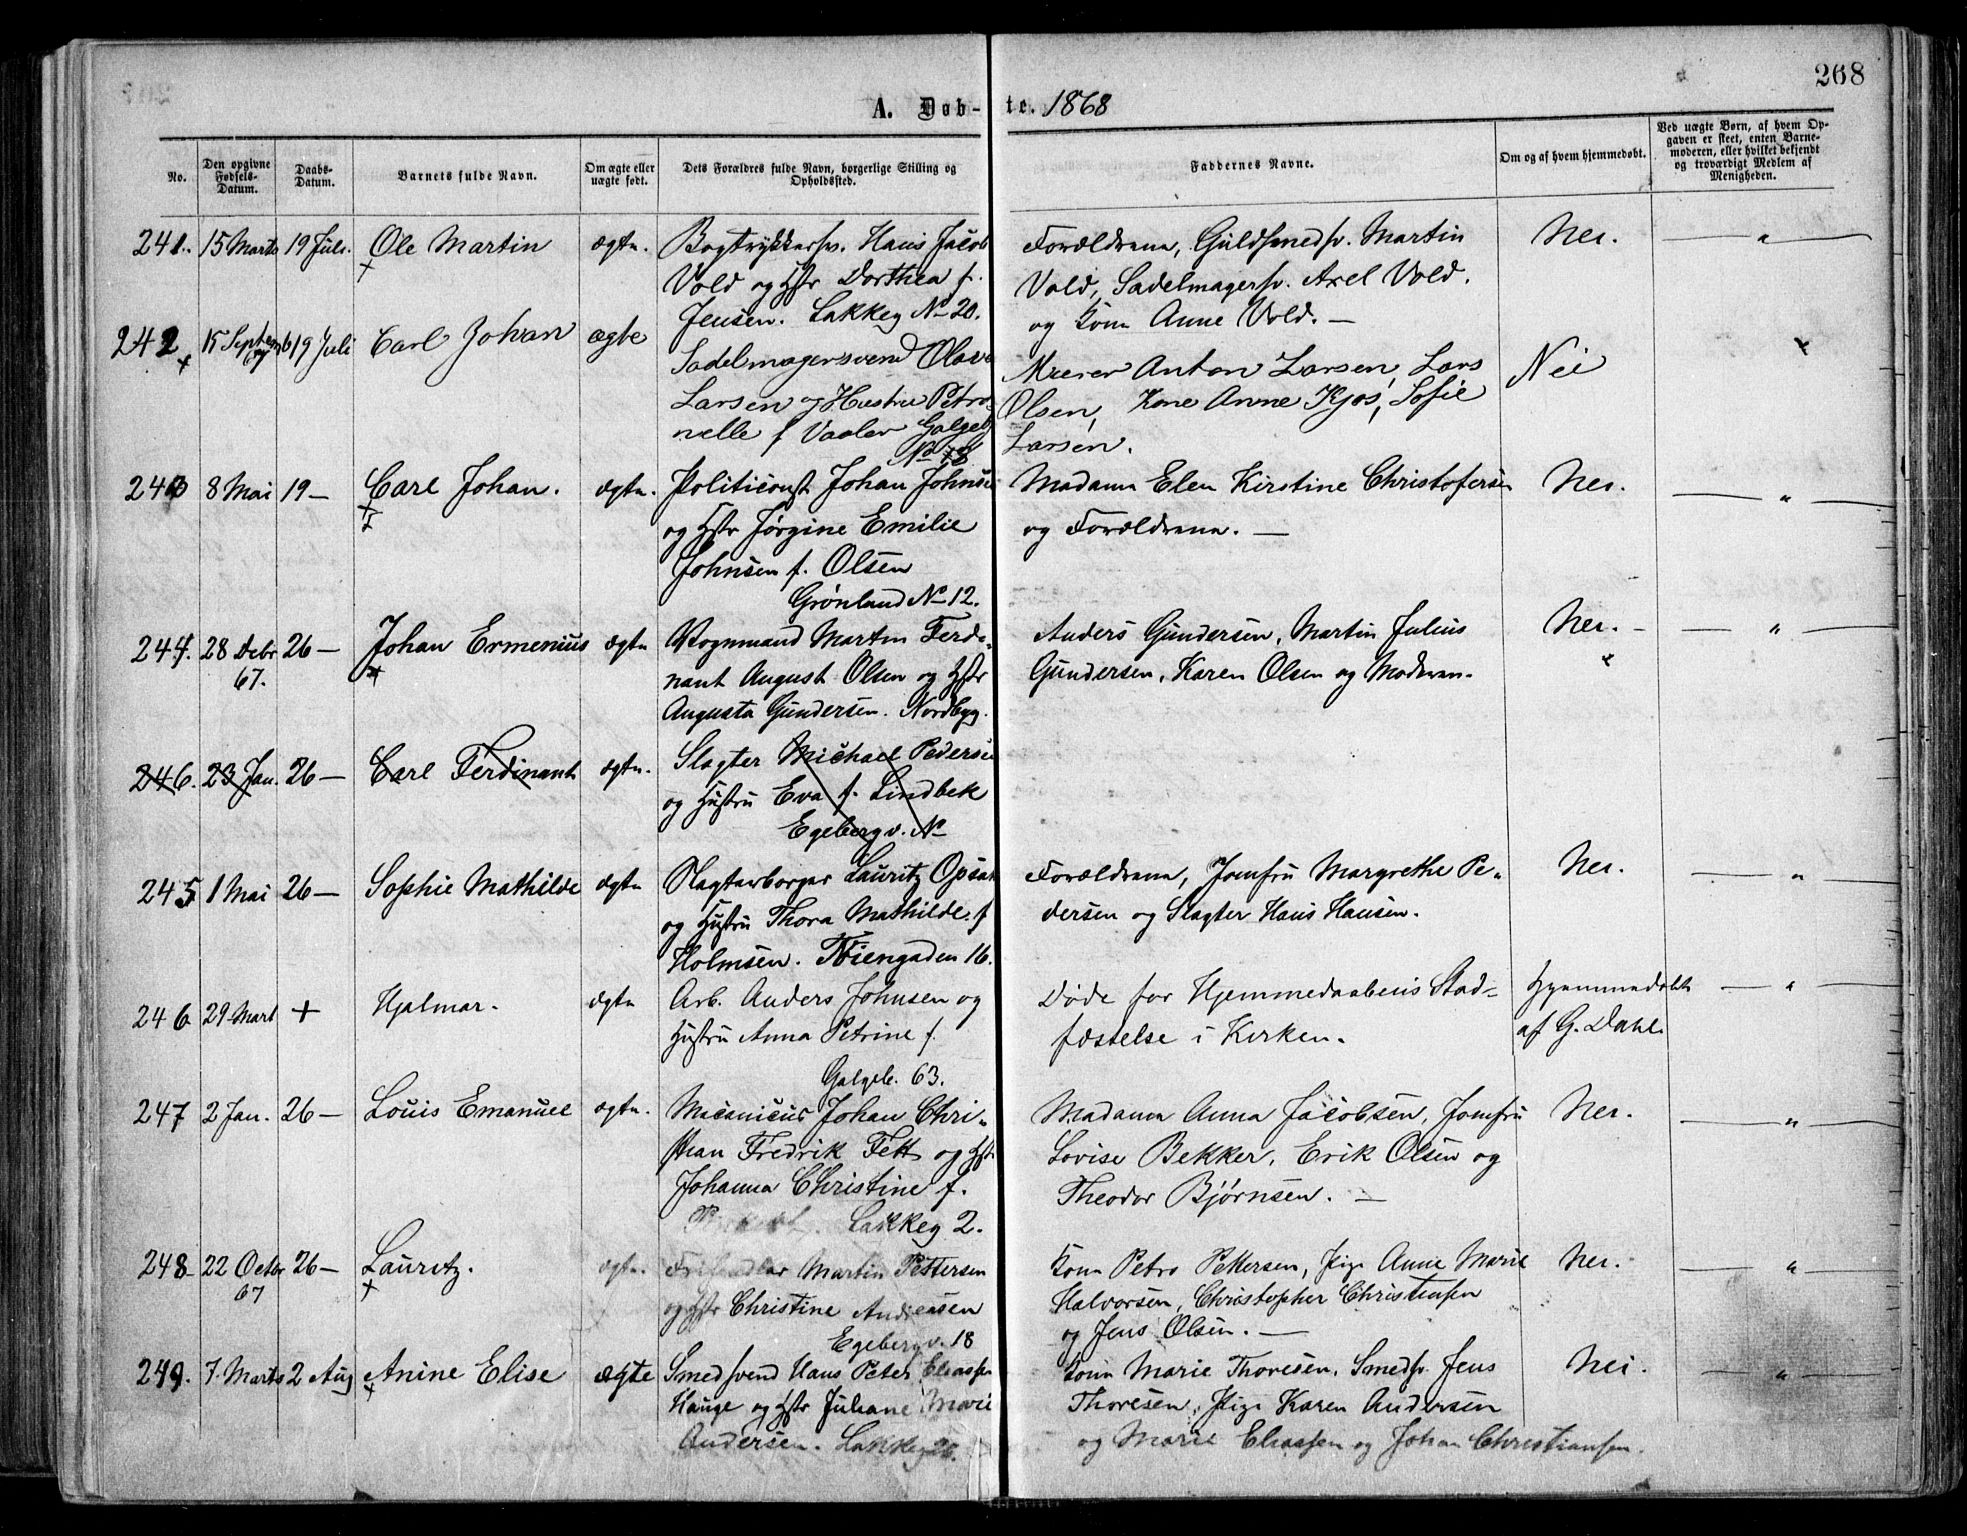 268
A. Døb-te. 1868
No.
Den opgivne Fødsels-Datum.
Daabs-Datum.
Barnets fulde Navn.
Om ægte eller uægte født.
Dets Forældres fulde Navn, borgerlige Stilling og Opholdssted.
Faddernes Navne.
Om og af hvem hjemmedøbt.
Ved uægte Børn, af hvem Op-
gaven er skeet, enten Barne-
moderen, eller hvilket bekjendt
og troværdigt Medlem af
Menigheden.
241. 15 Marts 19 Juli. Ole Martin ægte. Bogtrykkersv. Hans Jacob
Vold og Hstr Dorthea f.
Jensen. Lakkeg No 20.
Forældrene, Guldsmedsv. Martin
Vold, Sadelmagersv. Axel Vold.
og Kone Anne Vold. —
Nei. — " —
242 15 Septemb 67 19 Juli Carl Johan ægte Sadelmagersvend Olave
Larsen og Hustru Petro-
nelle f Vaaler Galgeb
No 18
Murer Anton Larsen, Lars
Olsen, Kone Anne Kjos, Sofie
Larsen.
Nei
243 8 Mai 19 — Carl Johan. ægte. Politiconst Johan Johnsen
og Hstr Jørgine Emilie
Johnsen f. Olsen
Grønland No 12.
Madame Elen Kirstine Christofersen
og Forældrene. —
Nei. — " —
244. 28 Debr 67. 26 — Johan Ermenius ægte Vognmand Martin Ferdi-
nant August Olsen og Hstr
Augusta Gundersen. Nordbyg.
Anders Gundersen, Martin Julius
Gundersen, Karen Olsen og Moderen.
Nei. — " —
246. 23 Jan. 26 — Carl Ferdinant ægte. Slagter Michael Pedersen
og Hustru Eva f. Lindbek
Egebergv. No
245 1 Mai 26 — Sophie Mathilde ægte Slagterborger Lauritz Opsat
og Hustru Thora Mathilde f
Holmsen. Tøiengaden 16.
Forældrene, Jomfru Margrethe Pe-
dersen og Slagter Hans Hansen.
Nei. — " —
246 29 Mart + Hjalmar. ægte Arb. Anders Johnsen og
Hustru Anna Petrine f.
Galgeb. 63.
Døde før Hjemmedaabens Stad-
fæstelse i Kirken.
Hjemmedøbt
af G. Dahl.
— " —
247 2 Jan. 26 — Louis Emanuel ægte. Mecanicus Johan Chri-
stian Fredrik Fett og Hstr
Johanna Christine f.
Lakkeg 2.
Madame Anna Jacobsen, Jomfru
Lovise Bekker, Erik Olsen og
Theodor Bjørnsen. —
Nei. — " —
248 22 Octbr 67 26 — Lauritz. ægte. Frihandler Martin Pettersen
og Hstr Christine Andreasen
Egebergv. 18
Kone Petra Pettersen, Pige Anne Marie
Halvorsen, Christopher Christensen
og Jens Olsen. —
Nei. — " —
249. 7. Marts 2 Aug Anine Elise ægte Smedsvend Hans Peter Eliassen
Hauge og Hstr Juliane Marie
Andersen. Lakkeg 26.
Kone Marie Thoresen, Smedsv. Jens
Thoresen, Pige Karen Andersen
og Marie Eliassen og Johan Christiansen.
Nei. — " —